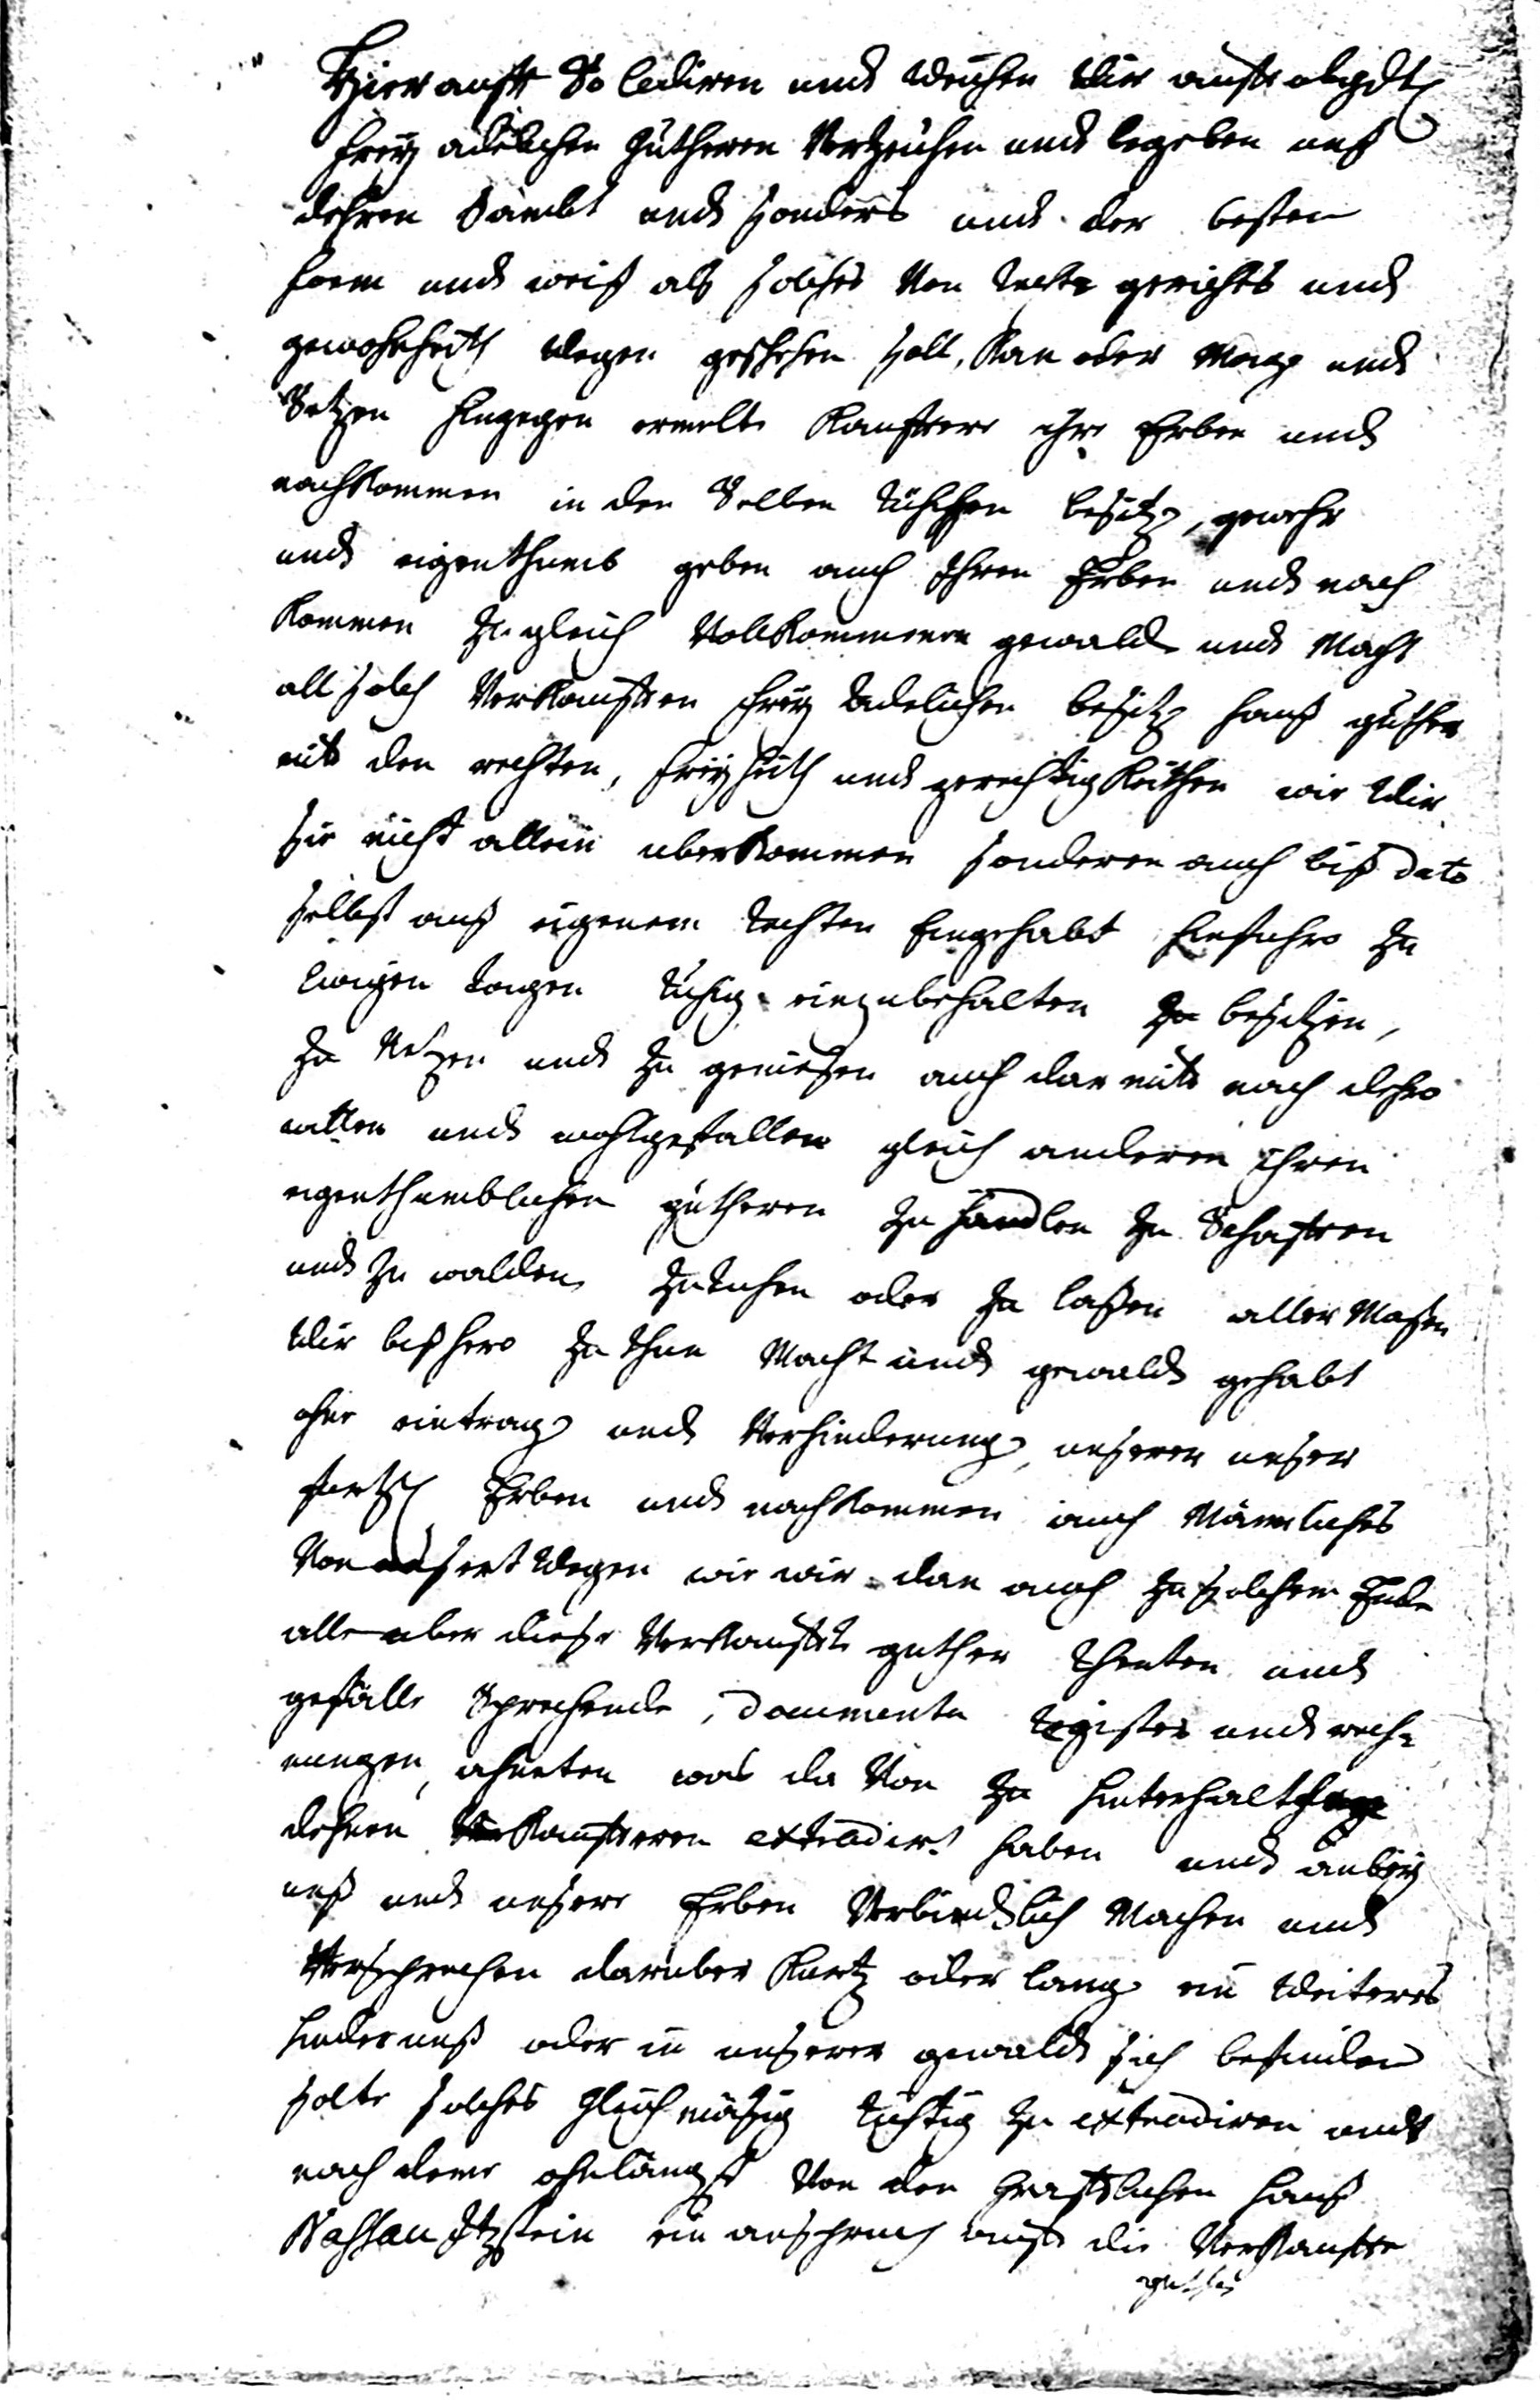 Hierauff So Cediren und Weichen Wir auff obgdte
freÿ adelichen gütheren Verzeichen und begeben unß
dehren Sambt und sonders und der besten
form und weiß alß solches Von Rechts gerichts und
gewohnheith Wegen geschehen soll, Kan oder Mag und
Setzen hingegen ermelte Kauffere ihre Erben und
nachKommen in den Selben rühigen besitz, gewehr
und eigenthumb geben auch Ihren Erben und nach
Kommen zugleich VollKommenen gewald und Macht
all solch VerKaufften freÿ Adelichen besitz hauß güther
mit den rechten, freÿheith und gerechtigKeithen wie Wir
sie nicht allein uberKommen sonderen auch biß dato
selbst auß eigenem Rechten Eingehabt hinfuhro zu
Ewigen tagen ruhig einzubehalten zu besitzen,
zu Nutzen und zu geniesen auch dar mit nach dehro
willen und wohlgefallen gleich anderen Ihren
eigenthumblichen gütheren zu handlen zu Schaffen
und zu walden zuthuen oder zu laßen aller Maßen
Wir bißhero zu thun Macht und gewald gehabt
ohne eintrag und Verhinderung unserer unser
Erben und nachKommen auch Männliches
Von unsert Wegen wie wir dan auch zu solchem Ende
alle uber diese VerKauffte güther Renten und
gefälle Sprechende, documenta Register und rech-
nungen, ohneten was da Von zu hinterhalthen
dehnen Kaufferen extradirt haben und anbeÿ
unß und unsere Erben Verbindlich Machen und
Versprechen daruber Kurtz oder lang ein Weiteres
hinder unß oder in unserer gewald sich befinden
solte solches gleichmäsig richtig zu extradiren und
nach deme ohnlängst Von den Graffelichen hauß
Naßau Itzstein ein anspruch auff die VerKauffte
güther